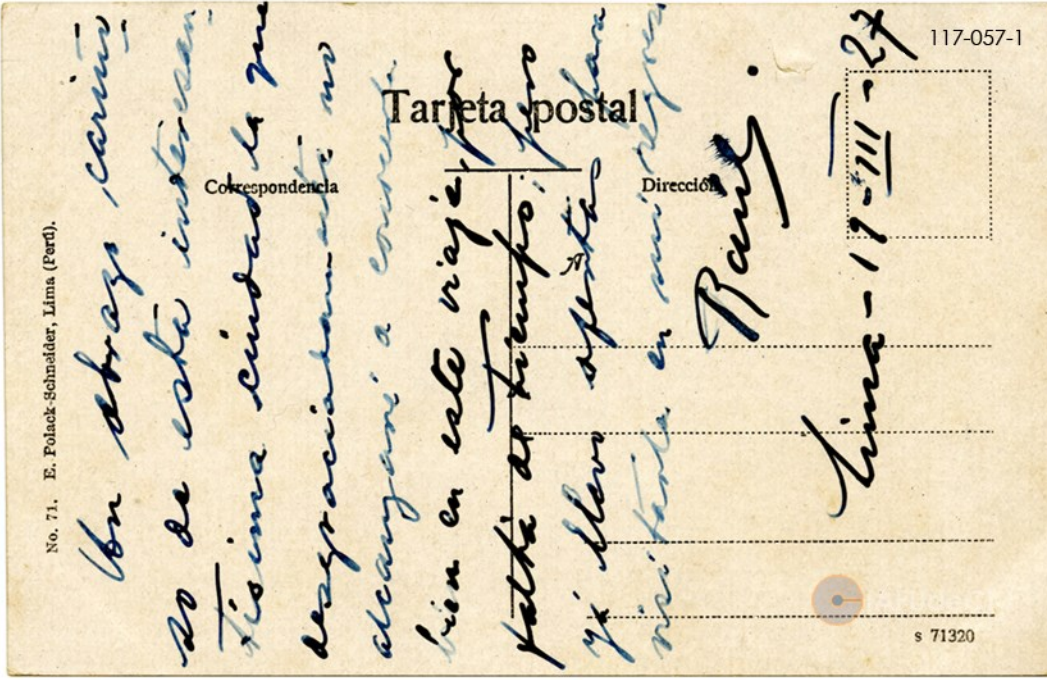 117-057-1
Tarjeta postal
Correspondencia
Dirección
No. 71. E. Polack-Schneider, Lima (Perú).
Un abrazo cariño-
so de esta interesan-
tísima ciudad la que
desgraciadamente no
alcanzaré a conocer
bien en este viaje, por
falta de tiempo; pero
yá llevo apenta para
visitarla en mi regreso
Raúl
Lima - 19-III-27
s 71320